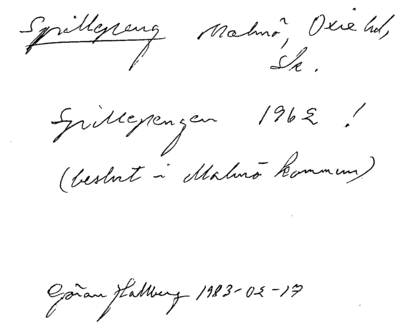 Spillepeng Malmö, Oxie hd,
Sk.
Spillepengen 1962 !
(beslut i Malmö kommun)
Göran Hallberg 1983-02-17